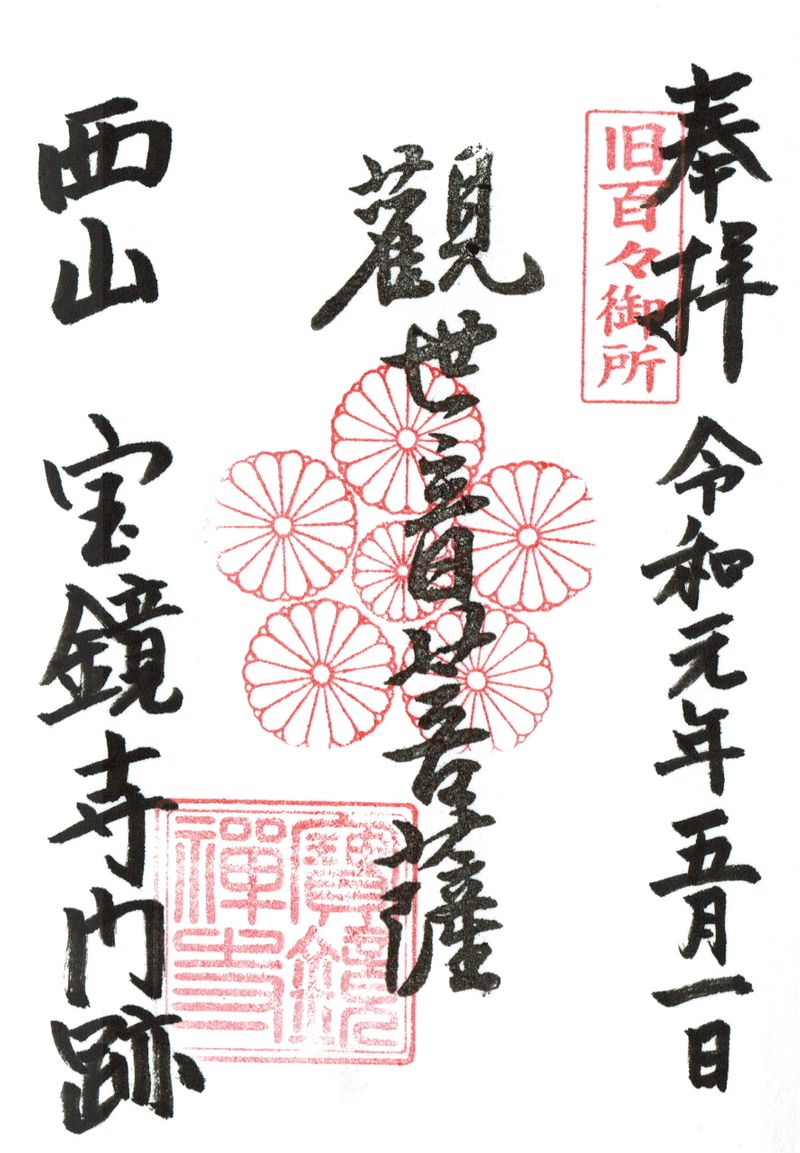 奉拝 令和元年五月一日
旧百々御所
觀世音菩薩
寶鏡
禅寺
西山 宝鏡寺門跡